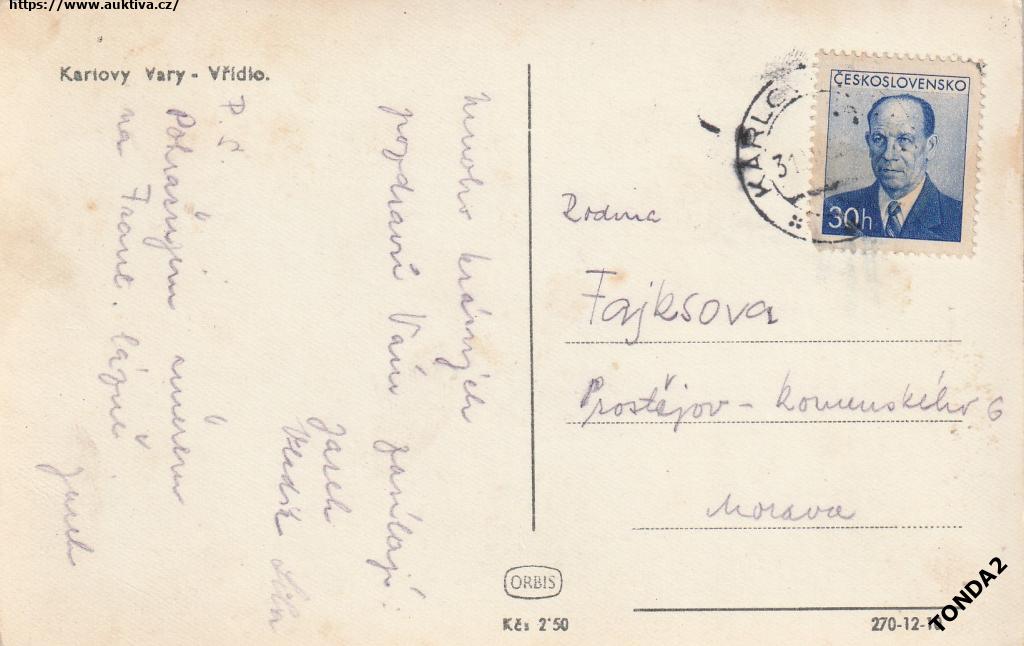 https://www.auktiva.cz/
Karlovy Vary - Vřídlo.
Mnoho krásných
pozdravů Vám zasílají:
Jarek
Vladík
P. S.
Pokračujem směrem
na Frant. lázně
ČESKOSLOVENSKO
30h
KARLO
31
Rodina
Fajksova
Prostějov - Komenského 6
Morava
ORBIS
Kčs 2'50
270-12-1
TONDA2